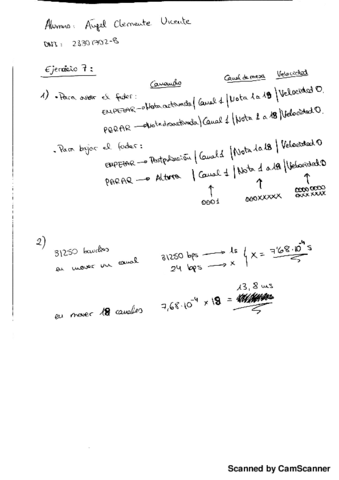 Alumno: Ángel Clemente Vicente
Ejercicio 7:
Comando Canal de mesa Velocidad
1) • Para subir el fader:
EMPEZAR → Nota activada / Canal 1 / Nota 1 a 18 / Velocidad 0.
PARAR → Nota desactivada / Canal 1 / Nota 1 a 18 / Velocidad 0.
• Para bajar el fader:
EMPEZAR → Postpulsación / Canal 1 / Nota 1 a 18 / Velocidad 0
PARAR → / Canal 1 / Nota 1 a 18 / Velocidad 0
↑ ↑ ↑
0001 0XXXXXXX
2)
31250 baudios
en mover un canal
31250 bps → 1s
24 bps → x
x = 7,68·10⁻⁴ s
13,8 ms
en mover 18 canales 7,68·10⁻⁴ x 18 =
Scanned by CamScanner